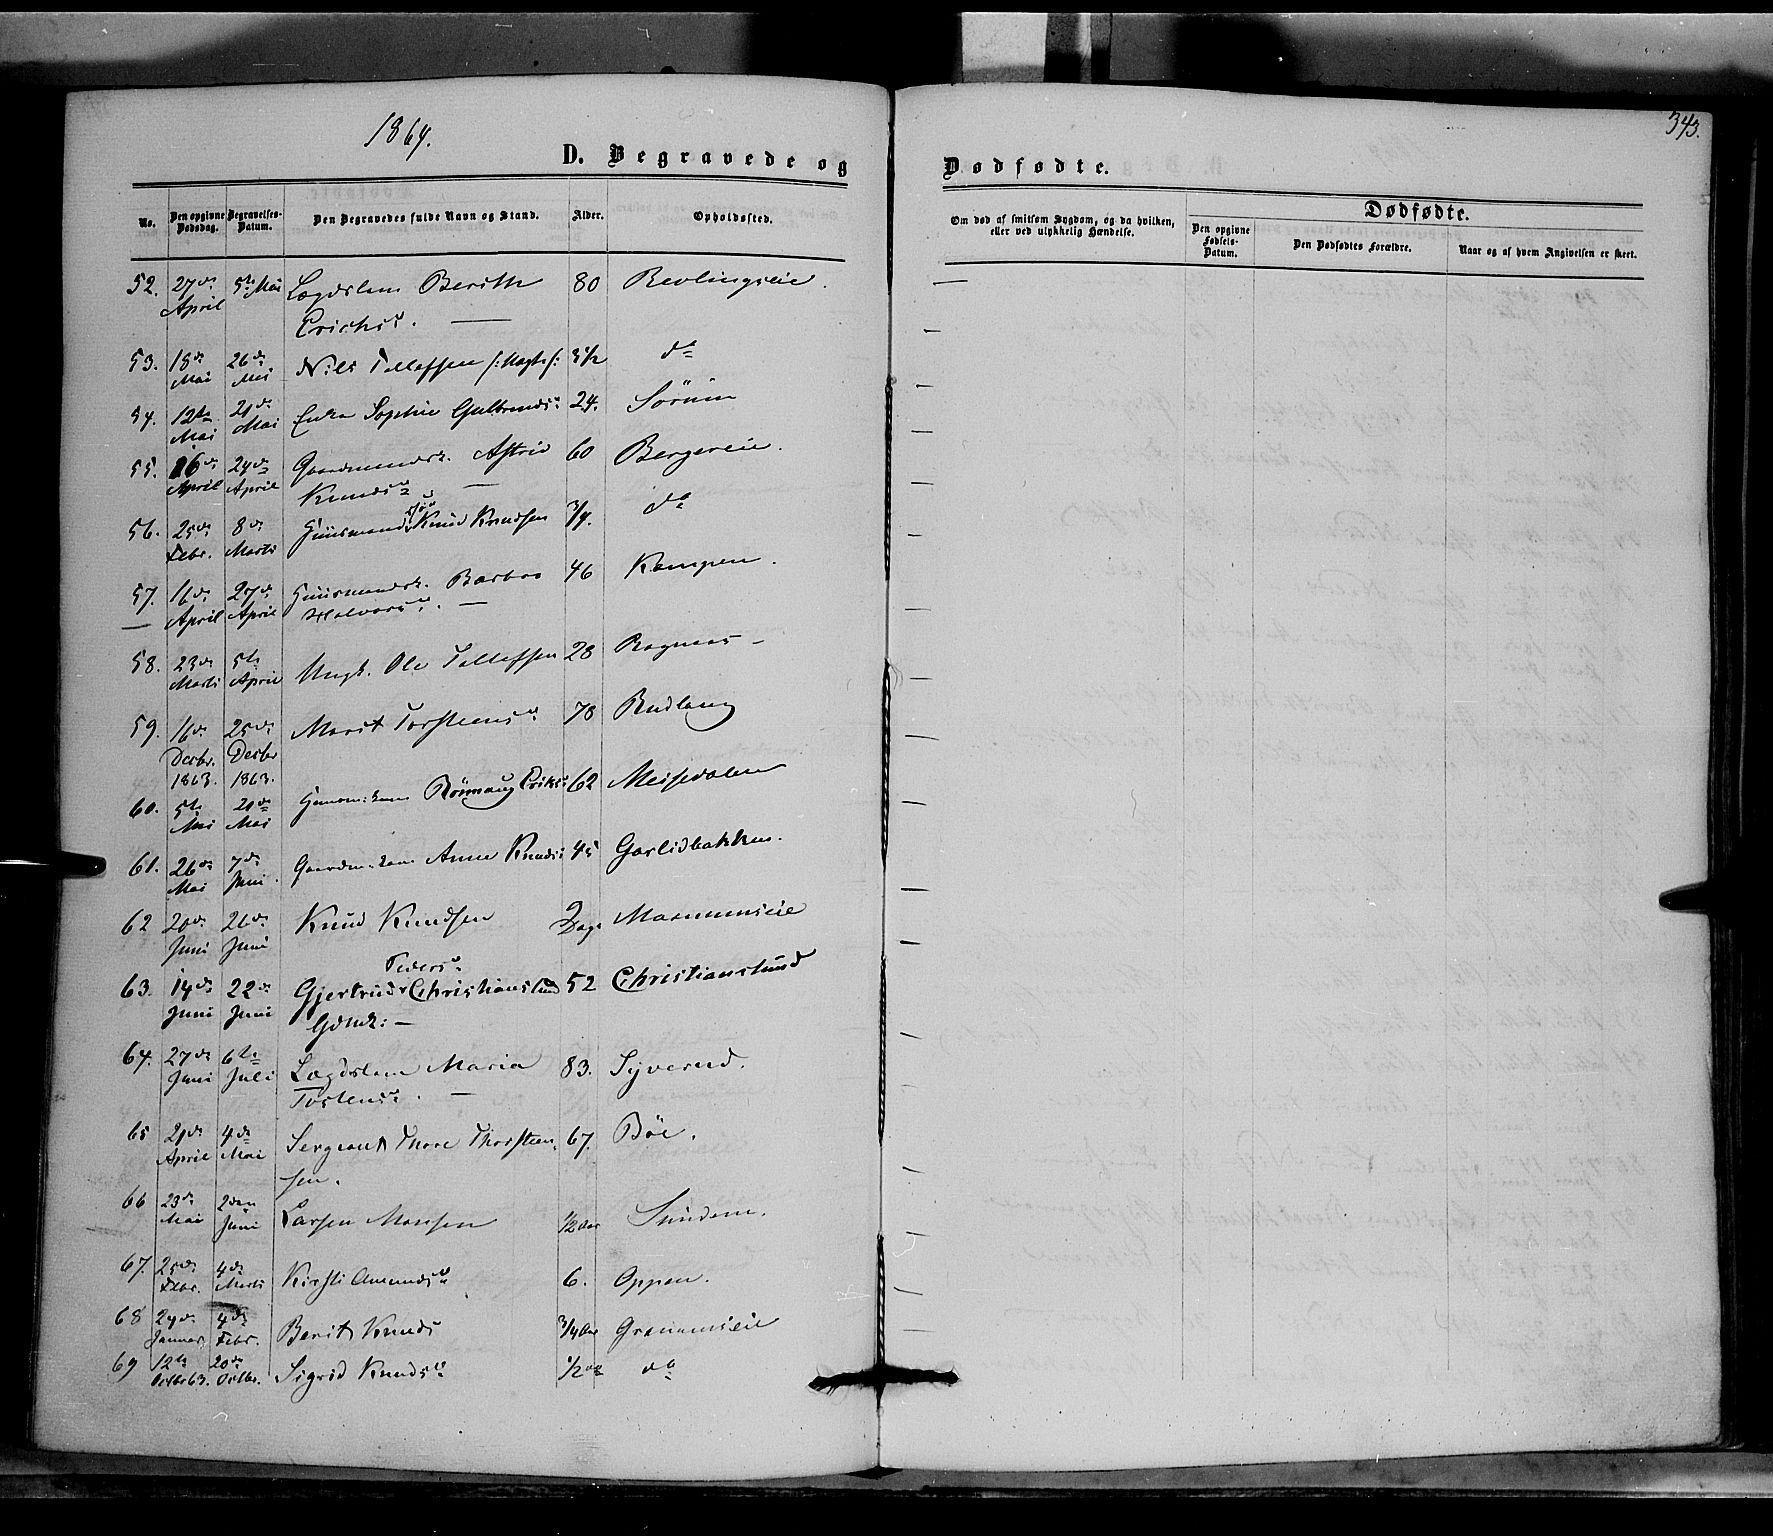 1864.
D. Begravede og
Dødfødte.
343.
No.
Den opgivne Dødsdag.
Begravelses-Datum.
Den Begravedes fulde Navn og Stand.
Alder.
Opholdssted.
Om død af smitsom Sygdom, og da hvilken, eller ved ulykkelig Hændelse.
Dødfødte.
Den opgivne Fødsels-Datum.
Den Dødfødtes Forældre.
Naar og af hvem Angivelsen er skeet.
52. 27de April 5te Mai Lægdslem Berith Erichsd. — 80
53. 18de Mai 26de Mai Nils Tollefsen 3 1/2 do
54. 12te Mai 21de Mai Sophie Gulbrandsd. 24. Sörum
55. 16de April 24de April Gaardmandsk. Astrid Knudsd. — 60 Bergereie.
56. 25de Febr. 8de Marts Huusmands Knud Knudsen 3/4. do
57. 16de April 27de April Huusmandsk. Barbro Halvorsd. — 46 Kampen.
58. 23de Marts 5te April Ungk. Ole Tollefsen 28 Ragnaas –
59. 16de Decbr. 1863. 25de Decbr 1863. Marit Torsteensd. 78 Rudlang
60. 5te Mai 20de Mai Rönnaug Eriksd. 62 Meisedalen
61. 26de Mai 7de Juni. Anne Knudsd. 45 Garlidbakken.
62 20de Juni 26de Juni Knud Knudsen 2 Dage
63. 14de Juni 22de Juni Gjertrud Pedersd. Christianslund Gdmk: — 52 Christianslund
64. 27de Juni 6te Juli Lægdslem Maria Tostensd. — 83. Syverud.
65 21de April 4de Mai Sergeant Thore Thorsteensen. 67. Böe.
66 23de Mai 2den Juni Larsen Monsen 1/2 Aar Sundem.
67. 25de Febr. 4de Marts Kirsti Amundsd. 6. Oppen.
68 24de Januar 4de Febr. Berit Knuds 3/4 Aar Granumseie
69 12te Octbr 63. 20de Octbr. Sigrid Knudsd. 1/2 do